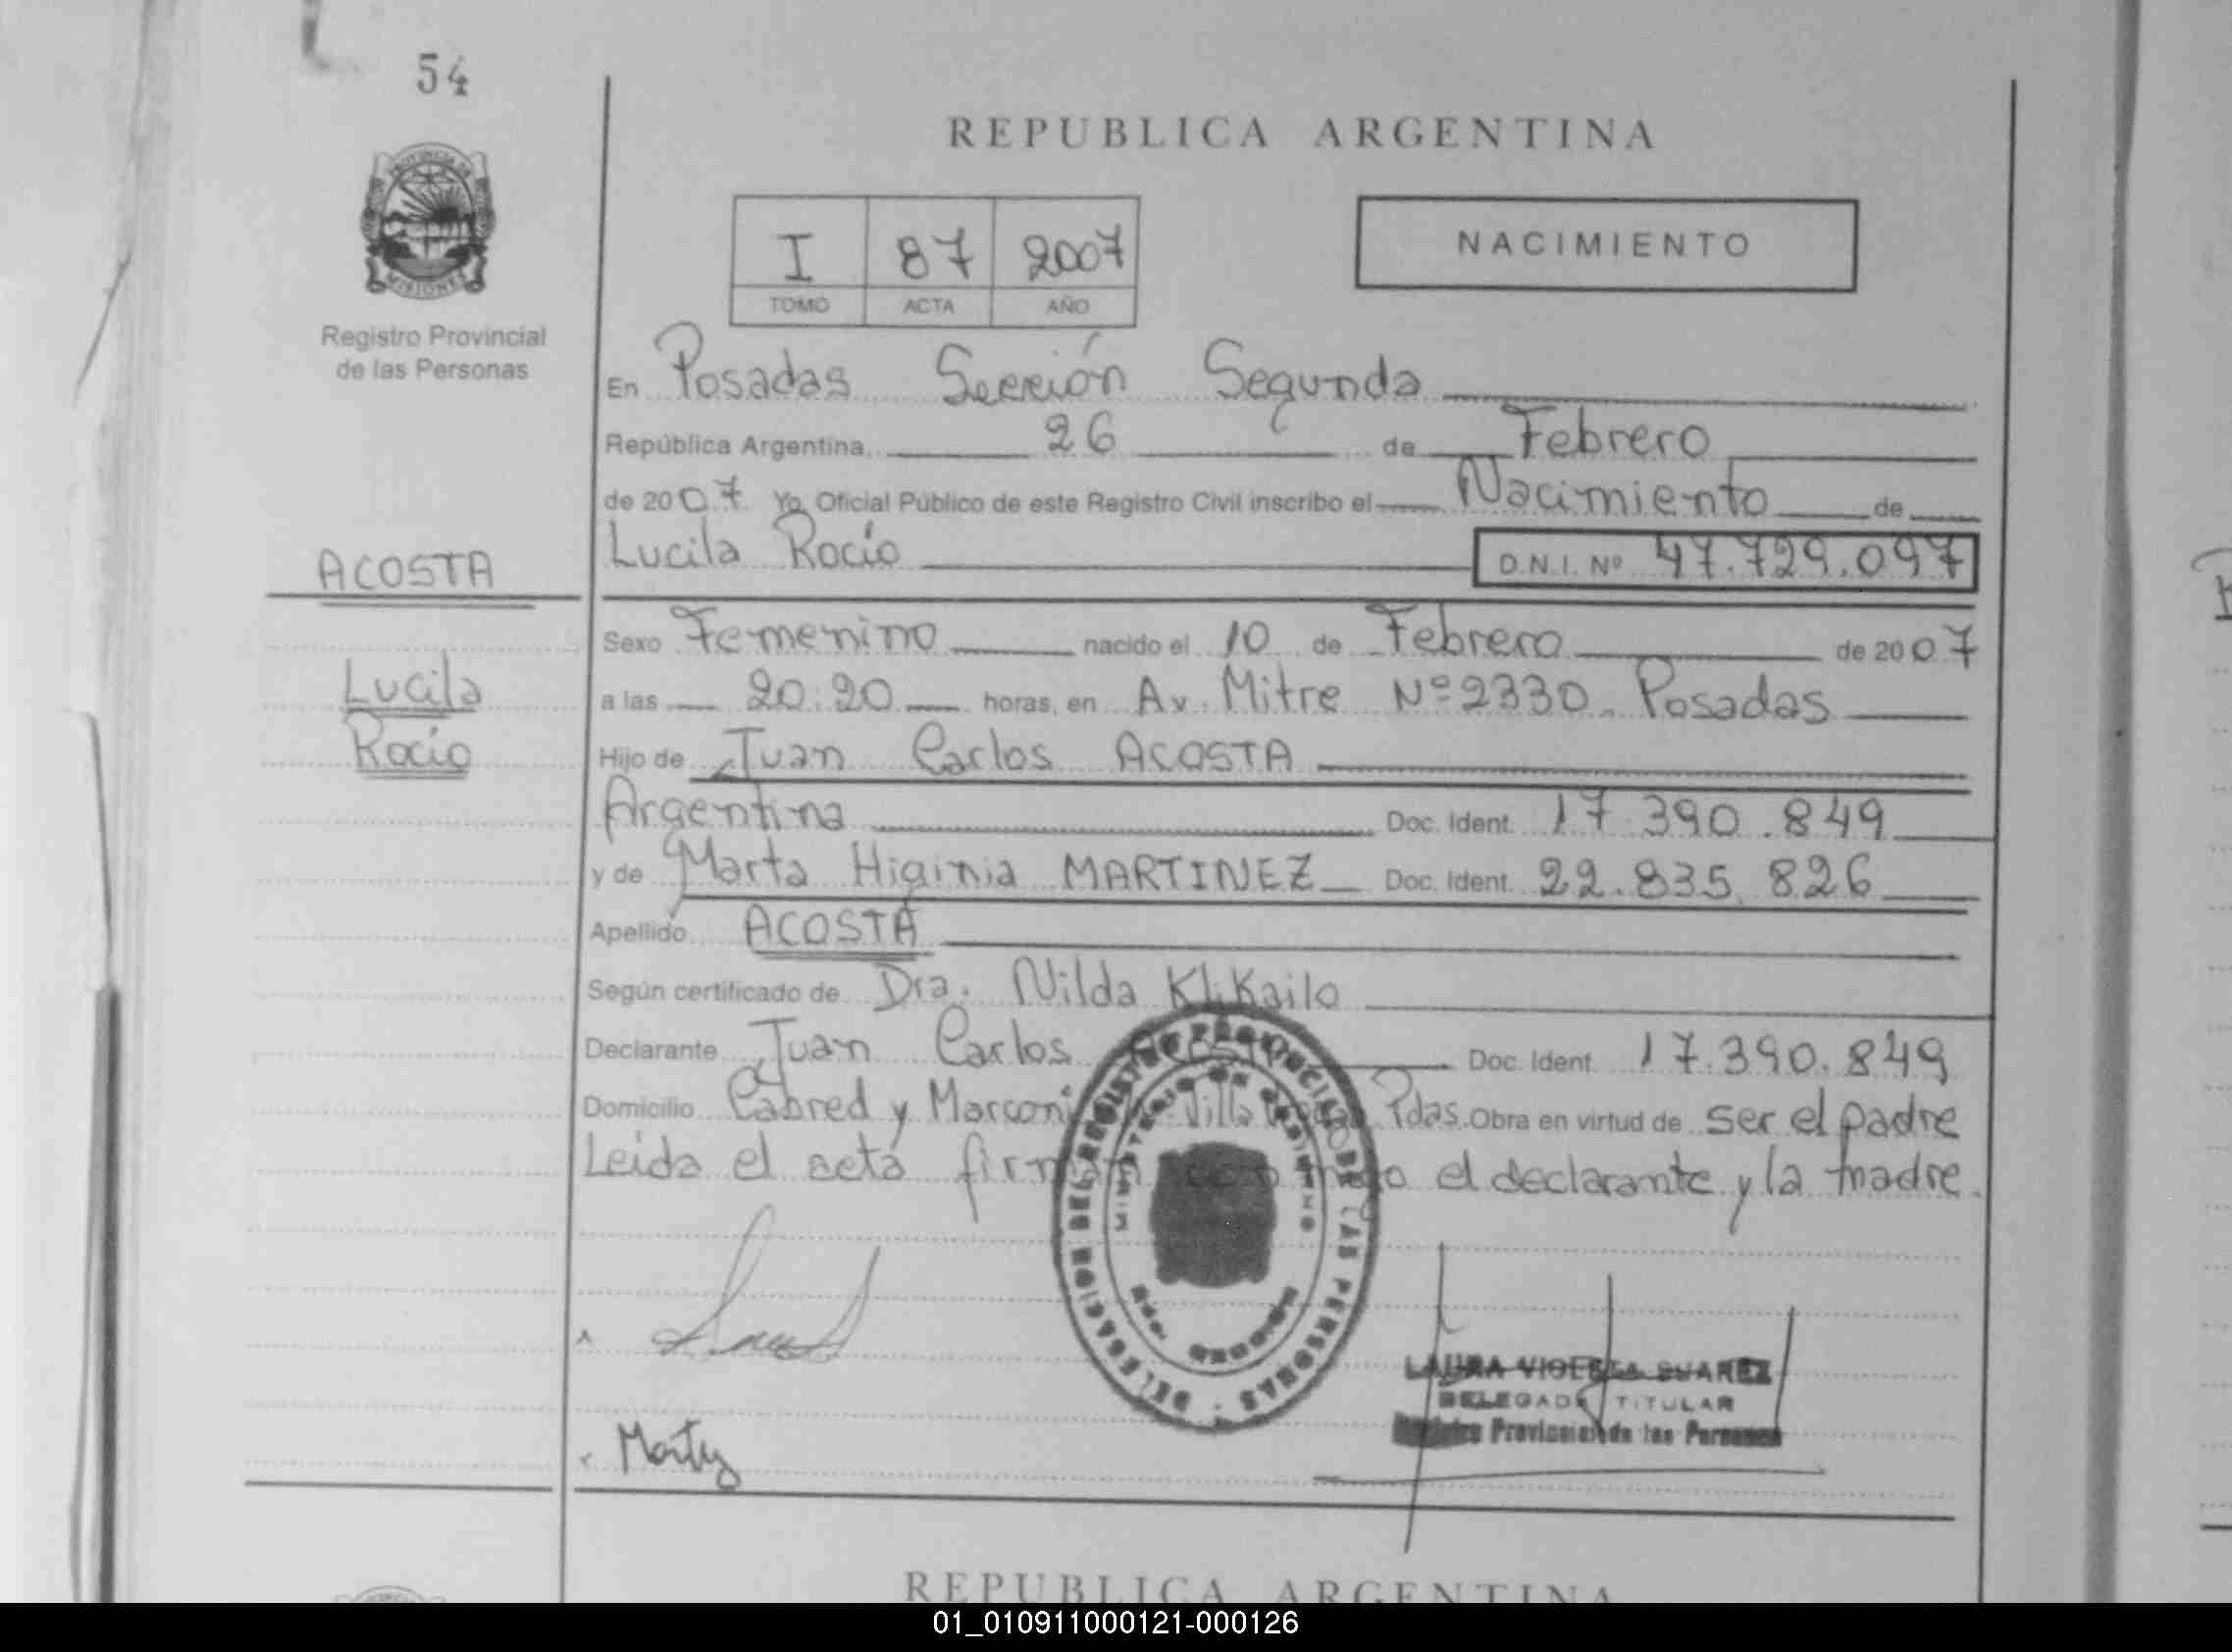 54
REPUBLICA ARGENTINA
PROVINCIA DE
MISIONES
Registro Provincial
de las Personas
I 87 2007
TOMO ACTA AÑO
NACIMIENTO
En Posadas Sección Segunda
República Argentina, 26 de Febrero
de 2007 Yo, Oficial Público de este Registro Civil inscribo el Nacimiento de
Lucila Rocío D.N.I. Nº 47.729.097
ACOSTA
Lucila
Rocío
Sexo Femenino nacido el 10 de Febrero de 2007
a las 20:20 horas, en Av. Mitre Nº 2330. Posadas
Hijo de Juan Carlos ACOSTA
Argentina Doc. Ident. 17.390.849
y de Marta Higinia MARTINEZ Doc. Ident. 22.835.826
Apellido ACOSTA
Según certificado de Dra. Nilda
Declarante Juan Carlos ACOSTA Doc. Ident. 17.390.849
Domicilio Cabred y Marconi Villa Pdas. Obra en virtud de ser el padre
Leida el acta firman conmigo el declarante y la madre.
DELEGACION DEL REGISTRO PROVINCIAL DE LAS PERSONAS
MINISTERIO DE GOBIERNO
MISIONES
Marty
LAURA VIOLETA SUAREZ
DELEGADA TITULAR
Registro Provincial de las Personas
REPUBLICA ARGENTINA
01_010911000121-000126